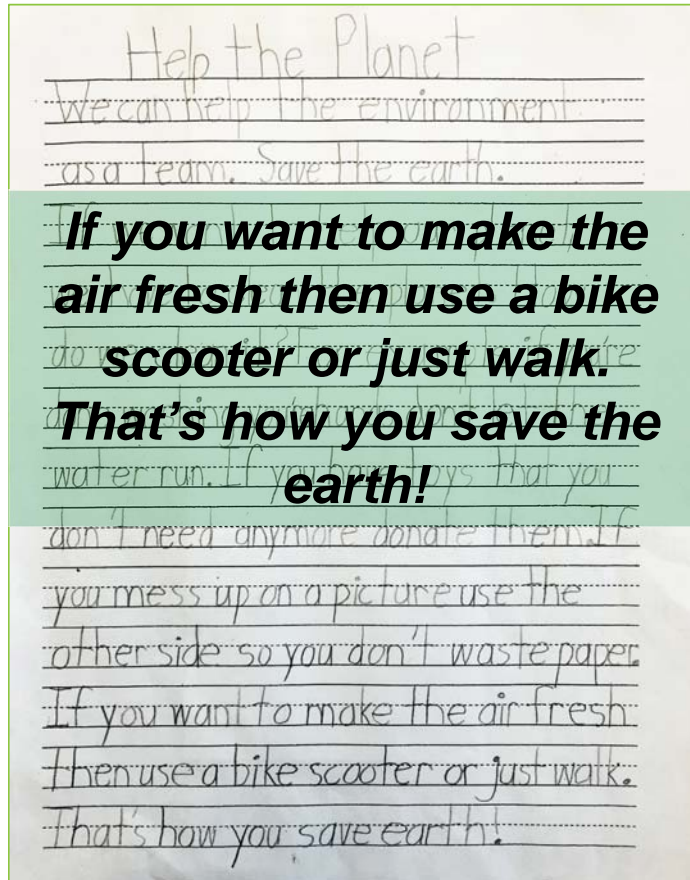 Help the Planet
We can help the environment
as a team. Save the earth.
If you want to make the
air fresh then use a bike
scooter or just walk.
That's how you save the
earth!
water run. If you have toys that you
don't need anymore donate them. If
you mess up on a picture use the
other side so you don't waste paper.
If you want to make the air fresh
then use a bike scooter or just walk.
That's how you save earth!